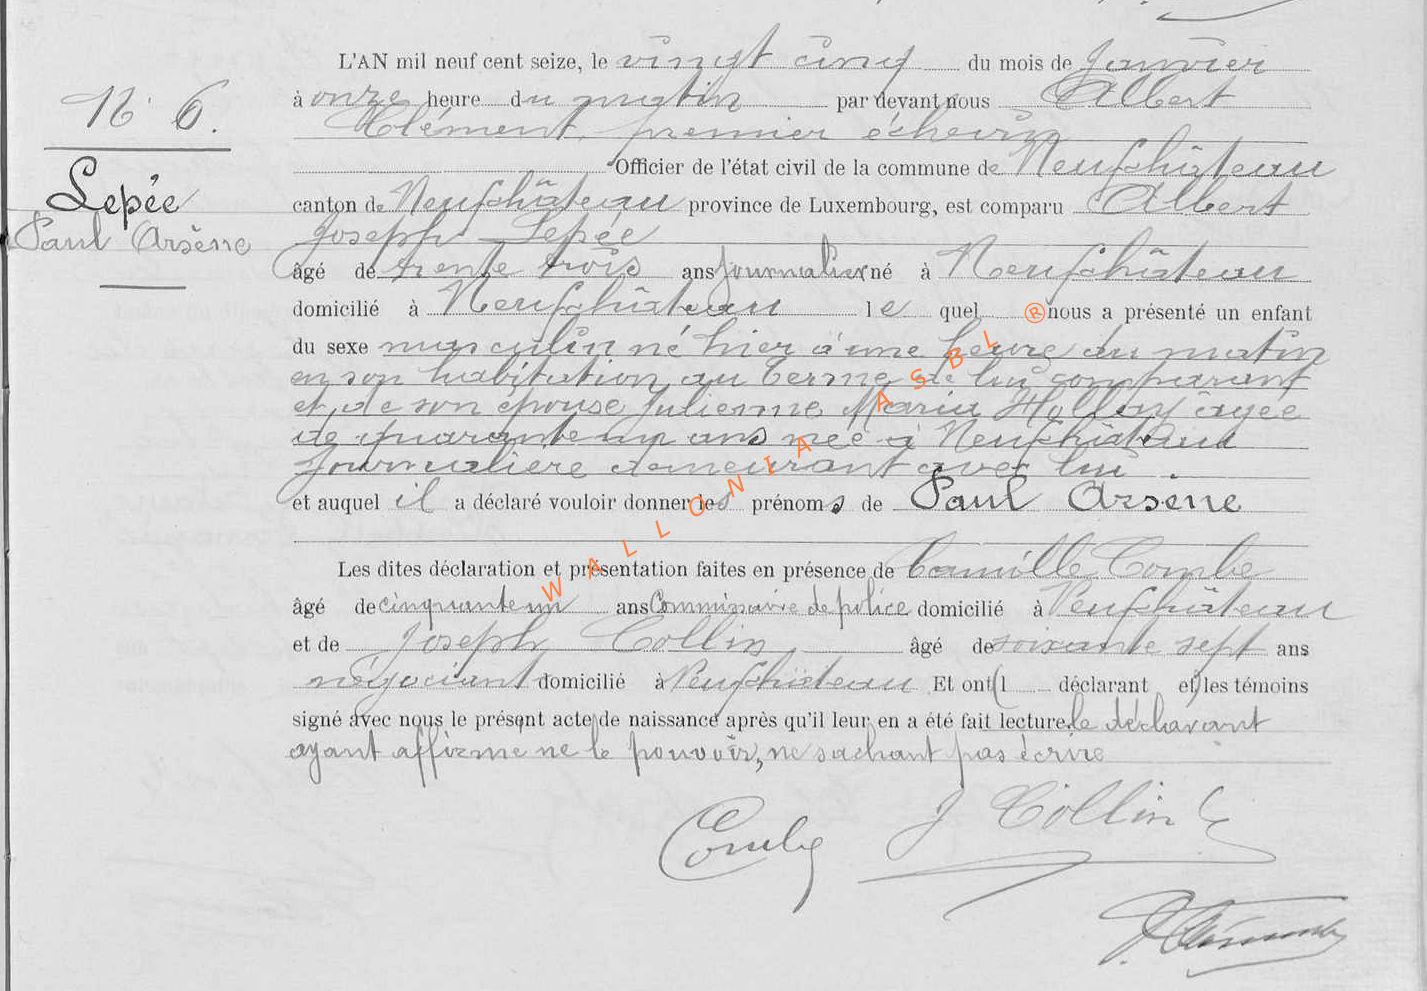 N° 6.
Lepée
Paul Arsène
L'AN mil neuf cent seize, le vingt cinq du mois de Janvier
à onze heure du matin par devant nous Albert
Clément, premier échevin
Officier de l'état civil de la commune de Neufchâteau
canton de Neufchâteau province de Luxembourg, est comparu Albert
Joseph Lepée
âgé de trente trois ans journalier né à Neufchâteau
domicilié à Neufchâteau le quel nous a présenté un enfant
du sexe masculin né hier à une heure du matin
en son habitation, au Terme de lui comparant
et de son épouse Julienne Maria Hollay âgée
de quarante un ans née à Neufchâteau
journalière demeurant avec lui.
et auquel il a déclaré vouloir donner les prénoms de Paul Arsène
Les dites déclaration et présentation faites en présence de Camille Combe
âgé de cinquante un ans Commissaire de police domicilié à Neufchâteau
et de Joseph Collin, âgé de soixante sept ans
négociant domicilié à Neufchâteau Et ont (l déclarant et) les témoins
signé avec nous le présent acte de naissance après qu'il leur en a été fait lecture, le déclarant
ayant affirmé ne le pouvoir, ne sachant pas écrire
Combe J Collin
Clément
® WALLONIA ASBL